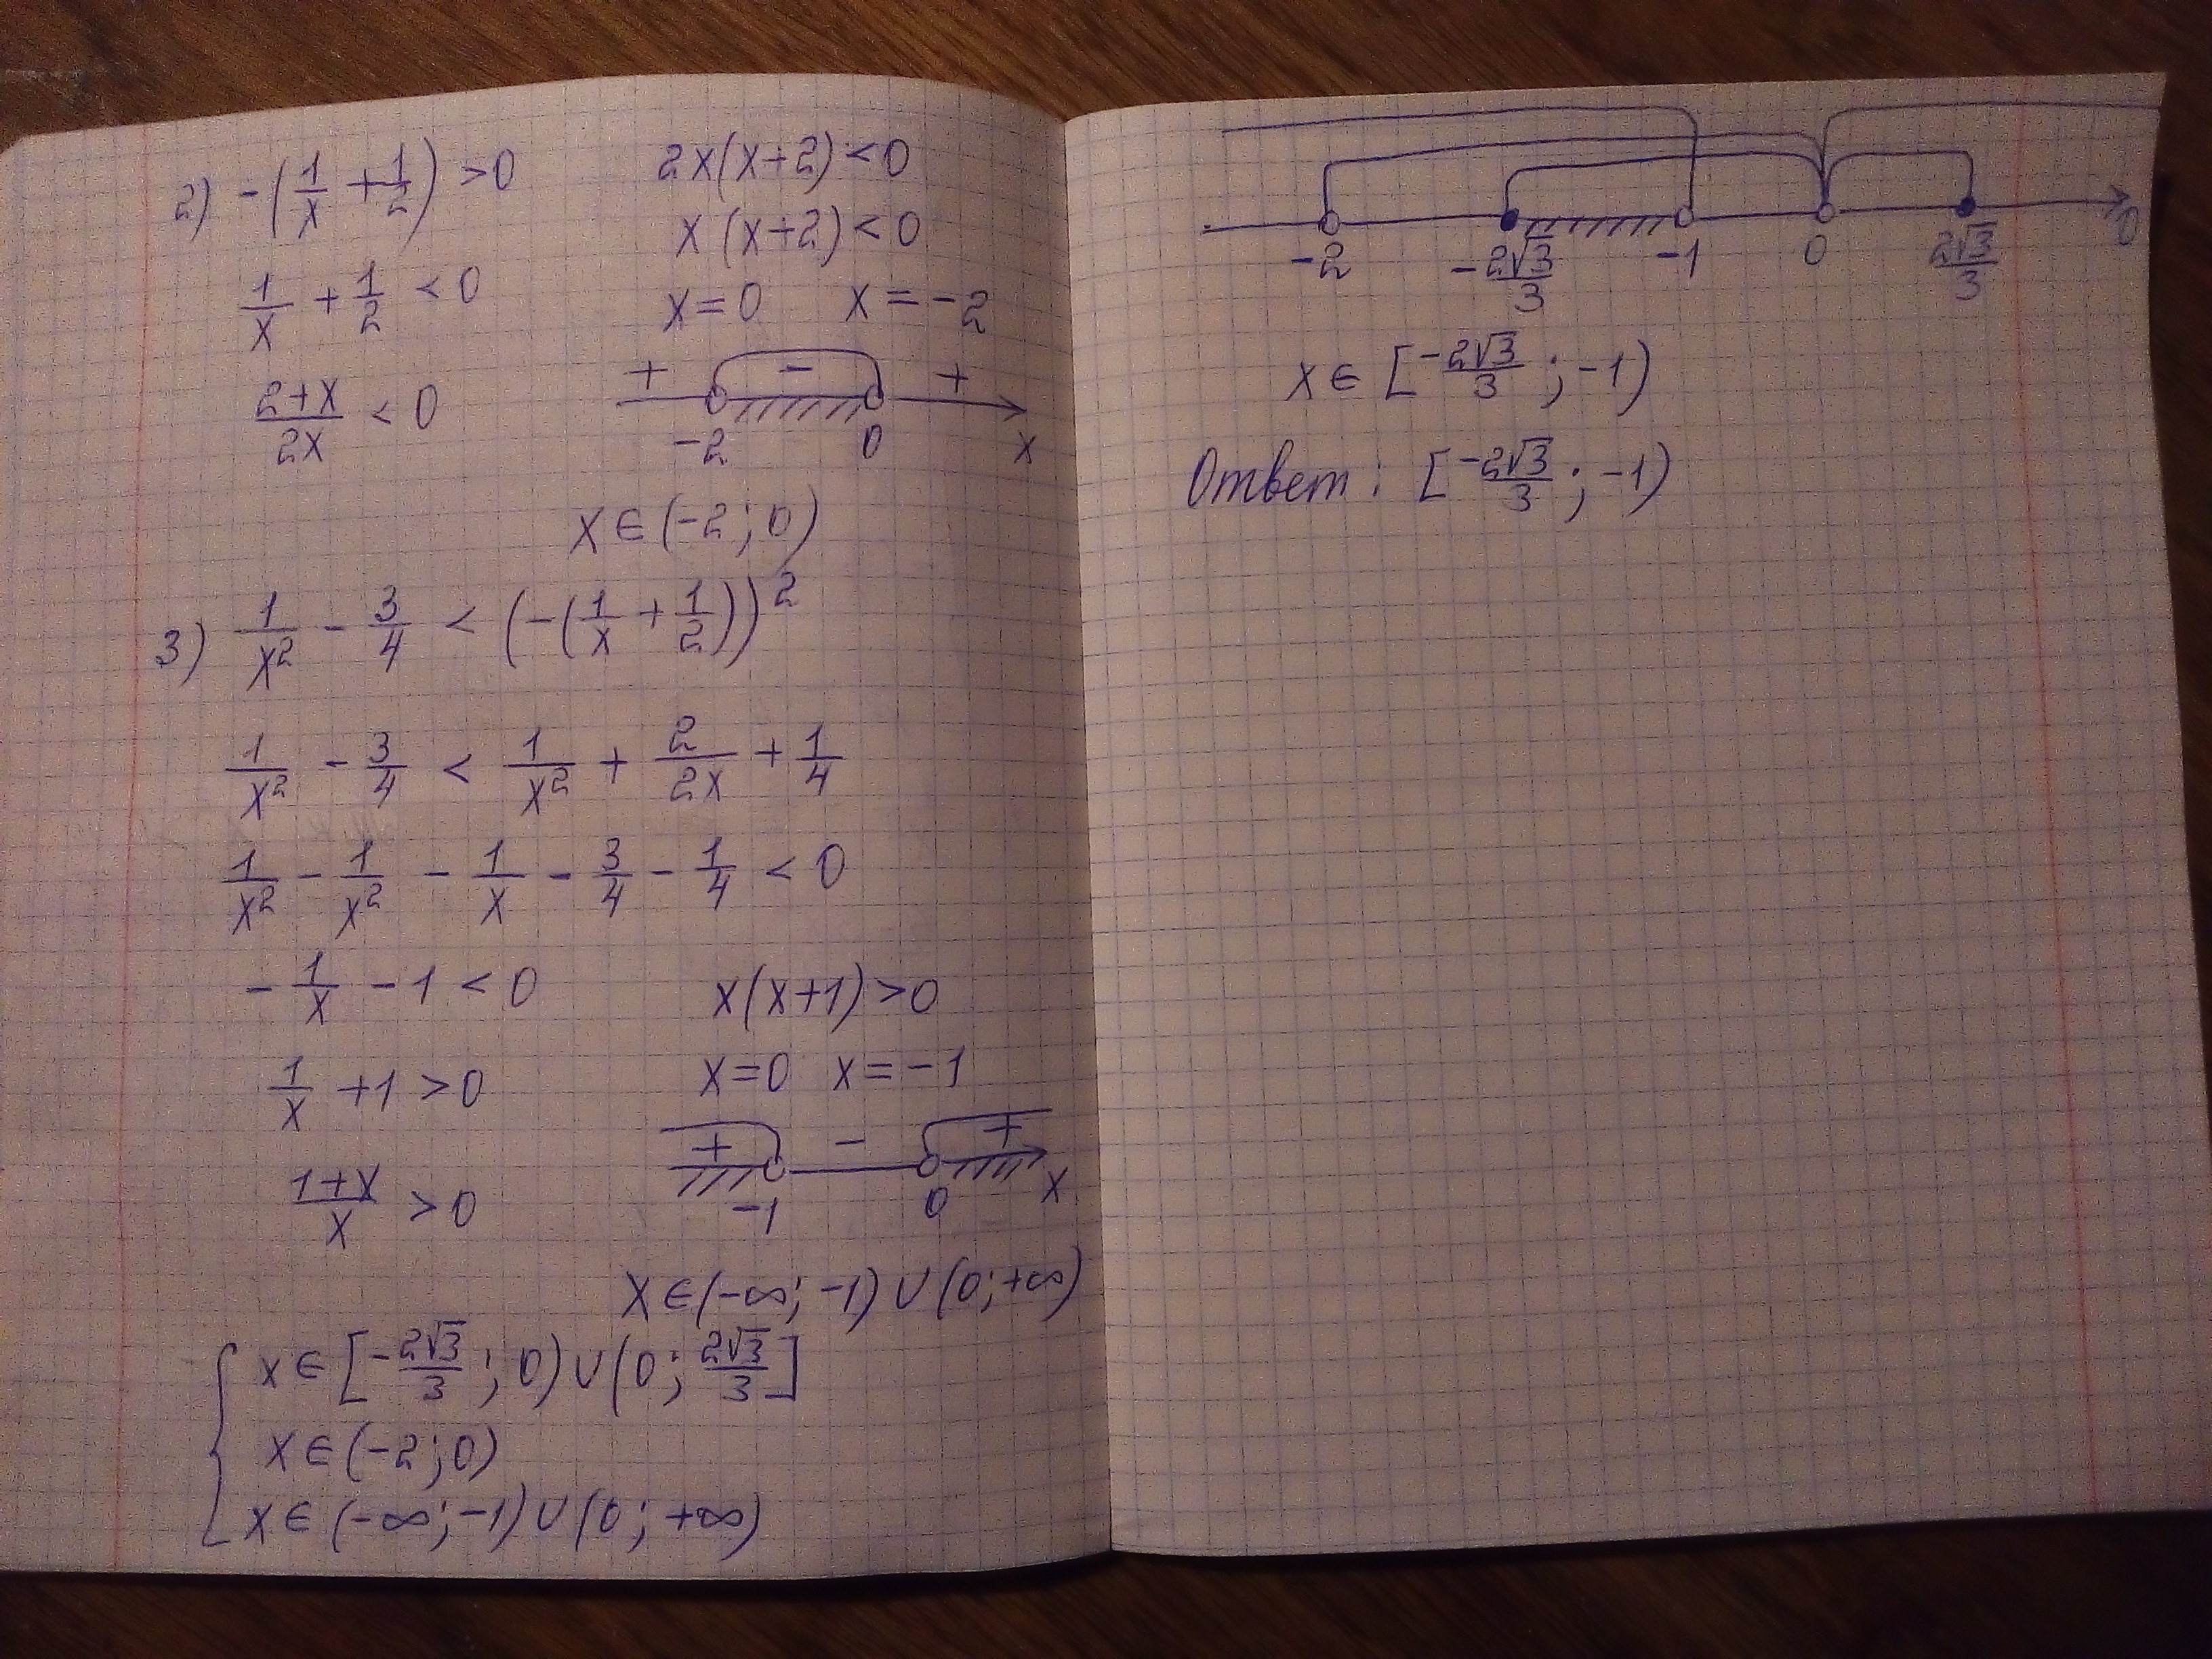 2) -(1/x + 1/2) > 0
1/x + 1/2 < 0
(2+x)/(2x) < 0
2x(x+2) < 0
x(x+2) < 0
x=0 x=-2
+ - +
-2 0 x
x∈(-2; 0)
3) 1/x² - 3/4 < (-(1/x + 1/2))²
1/x² - 3/4 < 1/x² + 2/(2x) + 1/4
1/x² - 1/x² - 1/x - 3/4 - 1/4 < 0
-1/x - 1 < 0
1/x + 1 > 0
(1+x)/x > 0
x(x+1) > 0
x=0 x=-1
+ - +
-1 0 x
x∈(-∞; -1)∪(0; +∞)
{ x∈[-2√3/3; 0)∪(0; 2√3/3]
x∈(-2; 0)
x∈(-∞; -1)∪(0; +∞)
-2 -2√3/3 -1 0 2√3/3
x∈[-2√3/3; -1)
Ответ: [-2√3/3; -1)